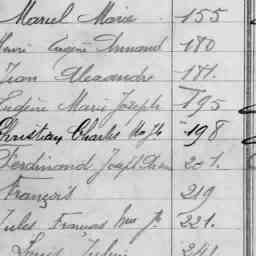 Marcel Marie 155
Henri Eugène Armand 180
Jean Alexandre 181.
Eugène Marie Joseph 195
Christian Charles 198
Ferdinand Joseph 201.
François 219
Jules François 221.
Louis Julien 241